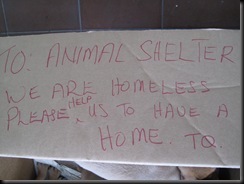 TO: ANIMAL SHELTER
WE ARE HOMELESS
PLEASE HELP US TO HAVE A
HOME. TQ.